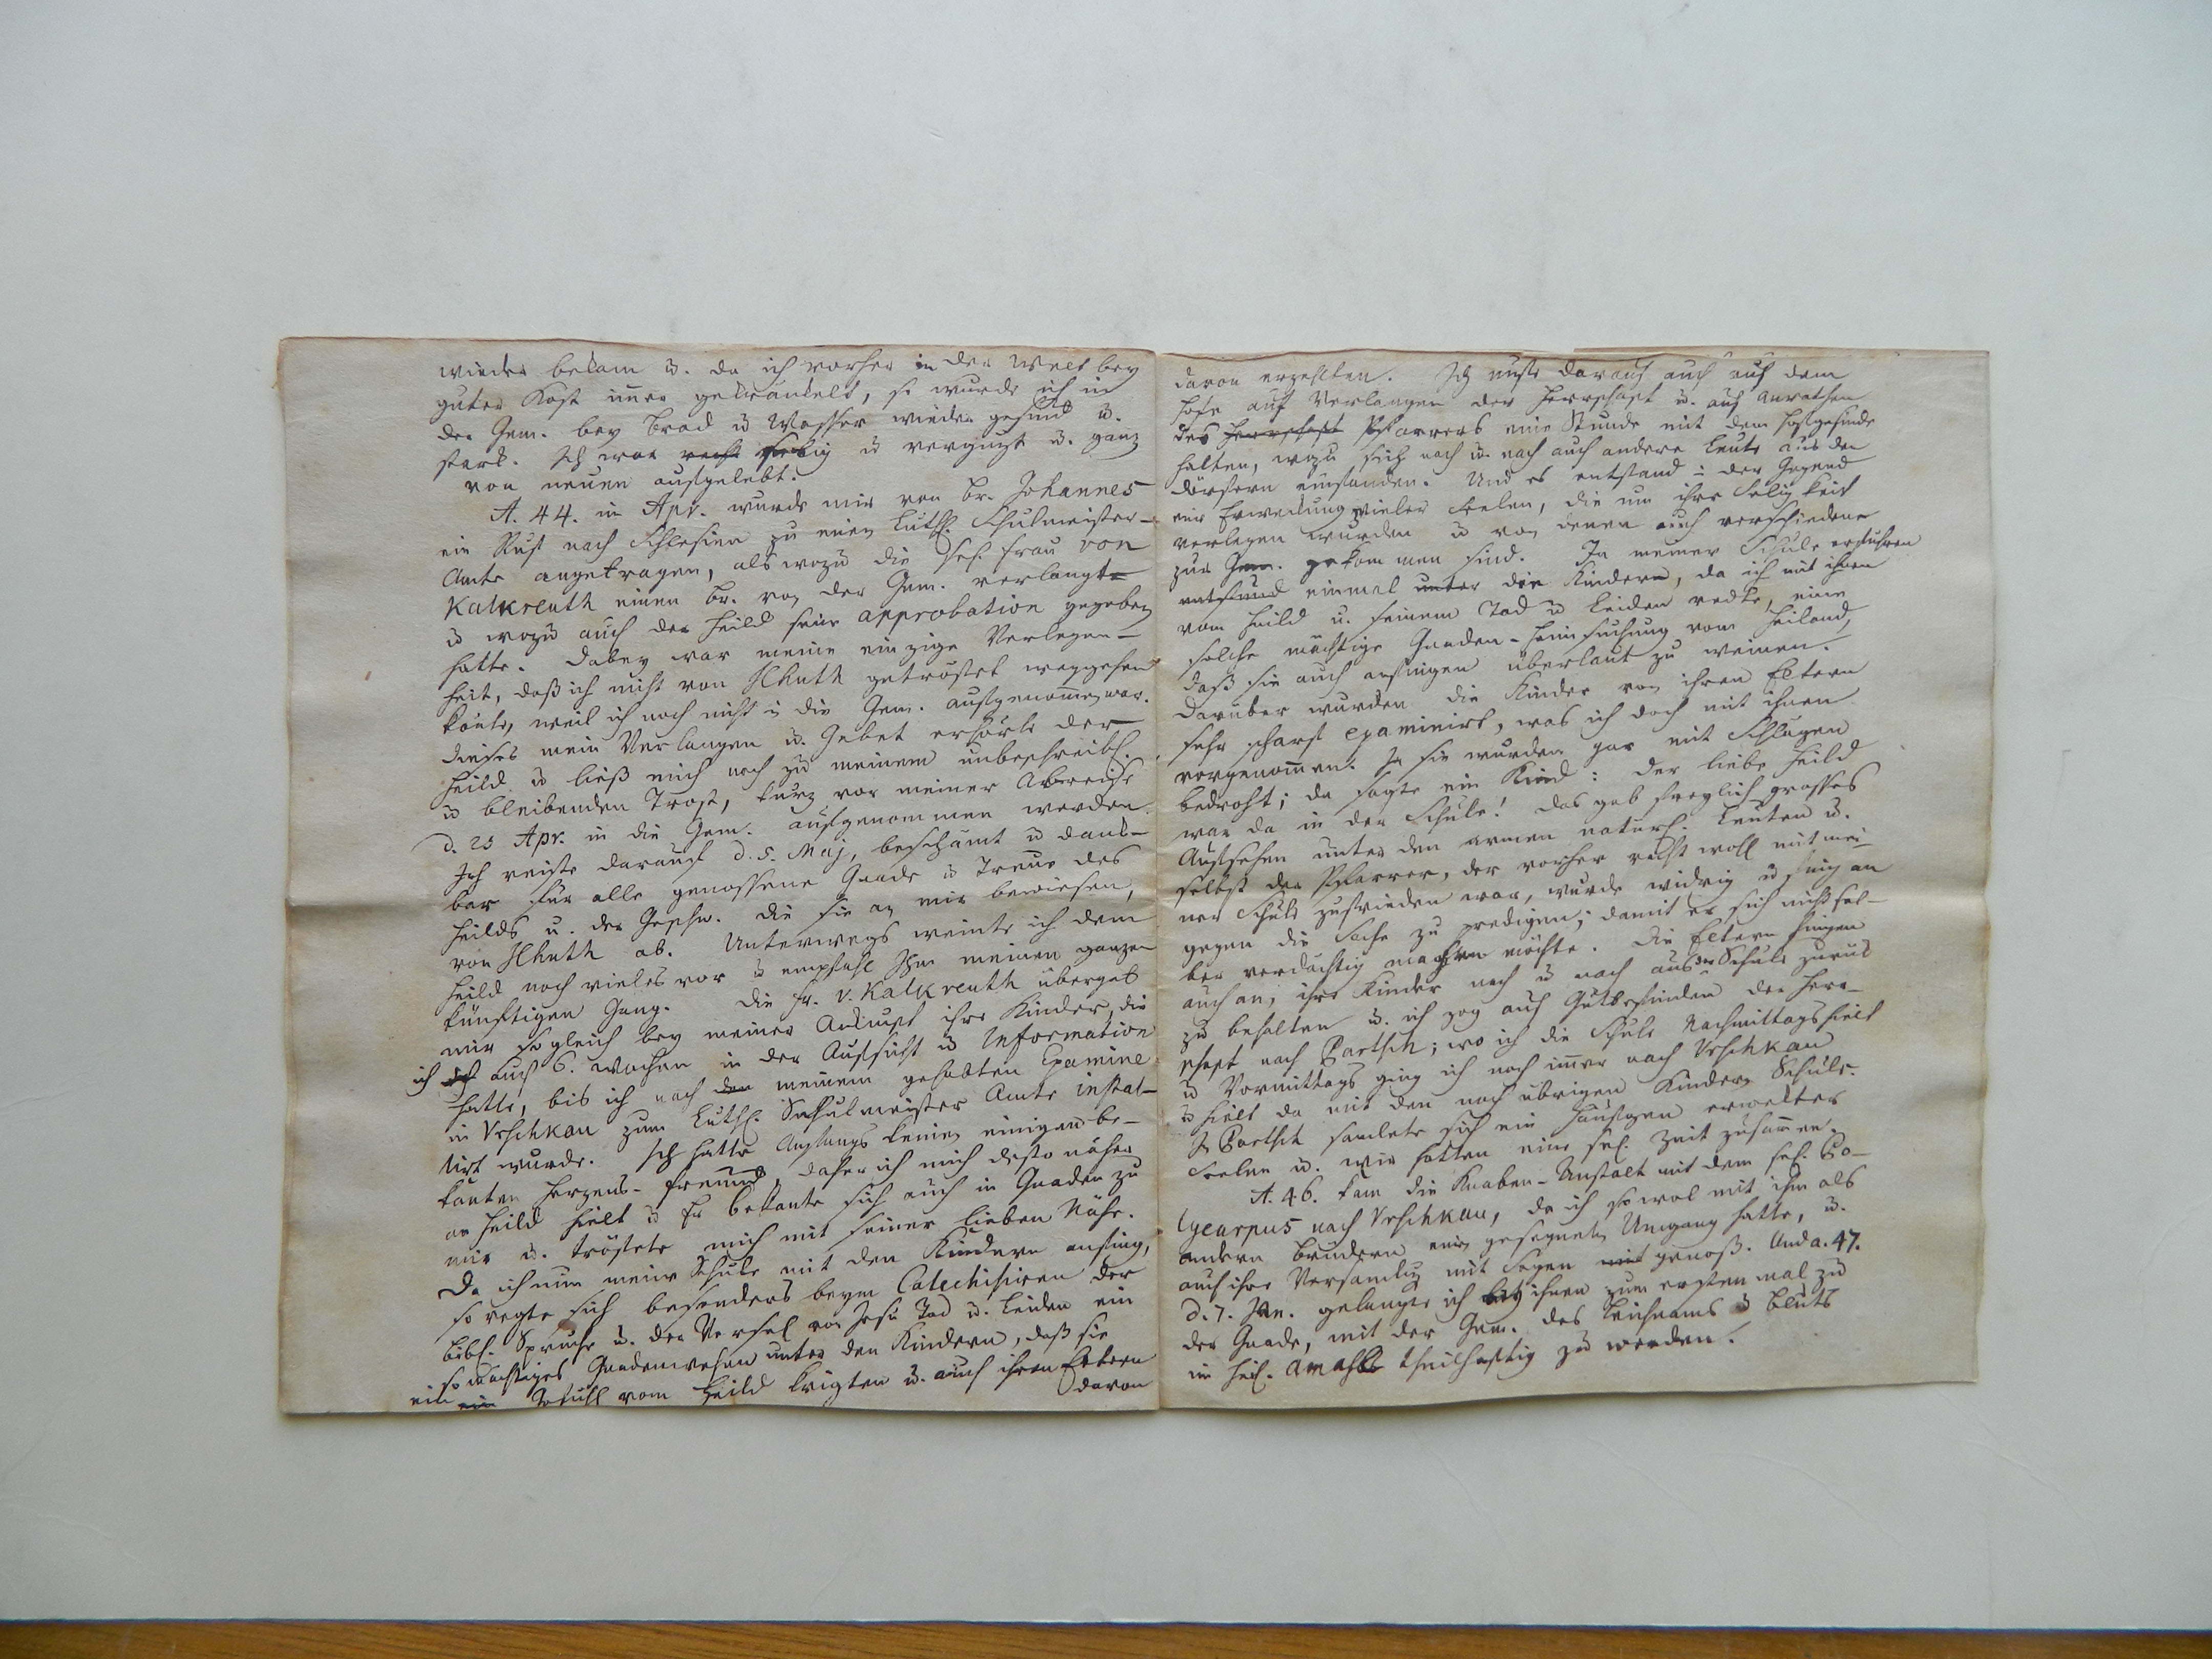 wieder bekam u. da ich vorher in der Welt bey
guter Kost im̅er gekränkelt, so wurde ich in
der Gem. bey Brod u Wasser wieder gesund u.
stark. Ich war recht selig u vergnügt u. ganz
von neuen aufgelebt.
A. 44. im Apr. wurde mir von Br. Johannes
ein Ruf nach Schlesien zu einen Luth. Schulmeister-
Amte angetragen, als wozu die sel. Frau von
Kalkreuth einen Br. von der Gem. verlangte
u wozu auch der Heild seine approbation gegeben
hatte. Dabey war meine einzige Verlegen-
heit, daß ich nicht von Hhuth getröstet weggehen
konte, weil ich noch nicht in die Gem. aufgenom̅en war.
Dieses mein Verlangen u. Gebet erhörte der
Heild u ließ mich noch zu meinem unbeschreibl.
u bleibenden Trost, kurz vor meiner Abreise
d. 23 Apr. in die Gem. aufgenommen werden.
Ich reiste darauf d. 5. Maj, beschämt u dank-
bar für alle genossene Gnade u Treue des
Heilds u. der Geschw. die sie an mir bewiesen,
von Hhuth ab. Unterwegs weinte ich dem
Heild noch vieles vor u empfahl Ihm meinen ganzen
künftigen Gang. Die Fr. v. Kalkreuth übergab
mir sogleich bey meiner Ankunft ihre Kinder, die
ich auch 6. Wochen in der Aufsicht u Information
hatte, bis ich nach den meinem gehabten Examine
in Urschkau zum Luth. Schulmeister Amte instal-
lirt wurde. Ich hatte Anfangs keinen einigen be-
kanten Herzens-Freund, daher ich mich desto näher
an Heild hielt u Er bekante sich auch in Gnaden zu
mir u. tröstete mich mit seiner lieben Nähe.
Da ich nun meine Schule mit den Kindern anfing,
so regte sich besonders beym Catechisiren der
bibl. Sprüche u. der Versel von Jesu Tod u. Leiden ein
so mächtiges Gnadenwehen unter den Kindern, daß sie
ein ein Gefühl vom Heild krigten u. auch ihren Eltern
davon
davon erzehlten. Ich muste darauf auch auf dem
Hofe auf Verlangen der Herrschaft u. auf Anrathen
des Herrschaft Pfarrers eine Stunde mit dem Hofgesinde
halten, wozu sich nach u. nach auch andere Leute aus den
Dörfern einfanden. Und es entstand in der Gegend
eine Erweckung vieler Seelen, die um ihre Seligkeit
verlegen wurden u von denen auch verschiedene
zur Gem. gekommen sind. In meiner Schule erfuhren
entstund einmal unter die Kindern, da ich mit ihnen
vom Heild u. seinem Tod u Leiden redte, eine
solche mächtige Gnaden-Heimsuchung vom Heiland,
daß sie auch anfingen überlaut zu weinen.
Darüber wurden die Kinder von ihren Eltern
sehr scharf examinirt, was ich doch mit ihnen
vorgenom̅en. Ja sie wurden gar mit Schlägen
bedroht; da sagte ein Kind: Der liebe Heild
war da in der Schule! Das gab freylich grosses
Aufsehen unter den armen natürl. Leuten u.
selbst der Pfarrer, der vorher recht wohl mit mei-
ner Schule zufrieden war, wurde widrig u fing an
gegen die Sache zu predigen; damit er sich nicht sel-
ber verdächtig machen möchte. Die Eltern fingen
auch an, ihre Kinder nach u nach aus der Schule zurück
zu behalten u. ich zog auf Gutbefinden der Herr-
schaft nach Bartsch; wo ich die Schule Nachmittags hielt
u Vormittags ging ich noch im̅er nach Urschkau
u hielt da mit den noch übrigen Kindern Schule.
In Bartsch samlete sich ein Häufgen erwekter
Seelen u. wir hatten eine sel. Zeit zusam̅en.
A. 46. kam die Knaben-Anstalt mit dem sel. Po-
lycarpus nach Urschkau, da ich so wol mit ihm als
andern Brüdern einen gesegneten Umgang hatte, u.
auch ihre Versamlung mit Segen mit genoß. Und a. 47.
d. 7. Jan. gelangte ich bey ihnen zum ersten mal zu
der Gnade, mit der Gem. des Leichnams u Bluts
im heil. Amahle theilhaftig zu werden.